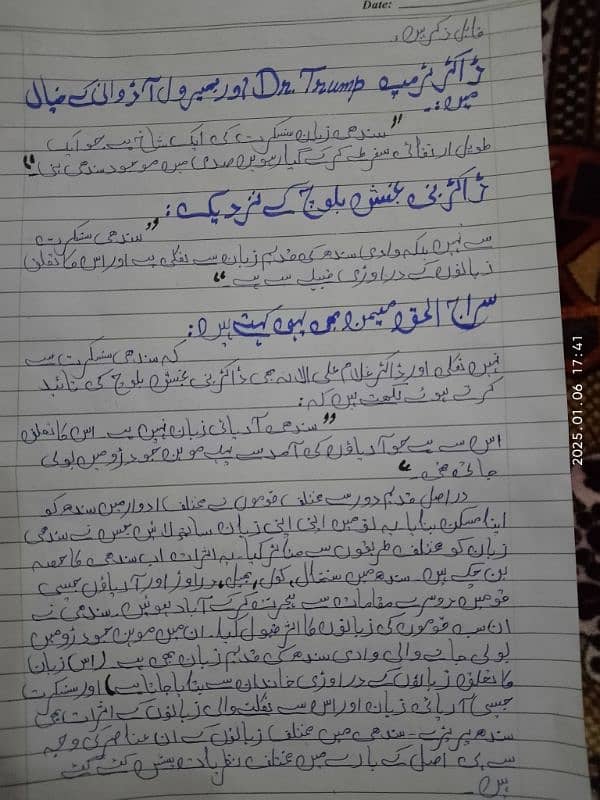 Date:
قابل ذکر ہیں۔
ڈاکٹر ٹرمپ Dr. Trump اور بھیرو مل آڈوانی کے خیال
میں:۔
"سندھی زبان سنسکرت کی ایک شاخ ہے جو ایک
طویل ارتقائی سفر طے کر کے گیارہویں صدی میں موجود سندھی بنی"
ڈاکٹر نبی بخش بلوچ کے نزدیک:
"سندھی سنسکرت
سے نہیں بلکہ وادی سندھ کی قدیم زبان سے نکلی ہے اور اس کا تعلق
زبانوں کے دراوڑی قبیلے سے ہے"
سراج الحق میمن بھی یہی کہتے ہیں:
کہ سندھی سنسکرت سے
نہیں نکلی اور ڈاکٹر غلام علی الانہ بھی ڈاکٹر نبی بخش بلوچ کی تائید
کرتے ہوئے لکھتے ہیں کہ:
"سندھی آریائی زبان نہیں ہے۔ اس کا تعلق
اس سے ہے جو آریاؤں کی آمد سے پہلے موہن جودڑو میں بولی
جاتی تھی۔"
دراصل قدیم دور سے مختلف قوموں نے مختلف ادوار میں سندھ کو
اپنا مسکن بنایا یہ لوگ اپنی اپنی زبان ساتھ لائیں جس نے سندھی
زبان کو مختلف طریقوں سے متاثر کیا۔ یہ اثرات اب سندھی کا حصہ
بن چکے ہیں۔ سندھ میں سنتھال، کول، بھیل، دراوڑ اور آریاؤں جیسی
قومیں دوسرے مقامات سے ہجرت کر کے آباد ہوئیں۔ سندھی نے
ان سب قوموں کی زبانوں کا اثر قبول کیا۔ ان میں موہن جودڑو میں
بولی جانے والی وادی سندھ کی قدیم زبان بھی ہے (اس زبان
کا تعلق زبانوں کے دراوڑی خاندان سے بتایا جاتا ہے) اور سنسکرت
جیسی آریائی زبان اور اس سے نکلنے والی زبانوں کے اثرات بھی
سندھی پر پڑے۔ سندھی میں مختلف زبانوں کے ان عناصر کی وجہ
سے ہی اصل کے بارے میں مختلف نظریات پیش کئے گئے
ہیں۔
2025.01.06 17:41